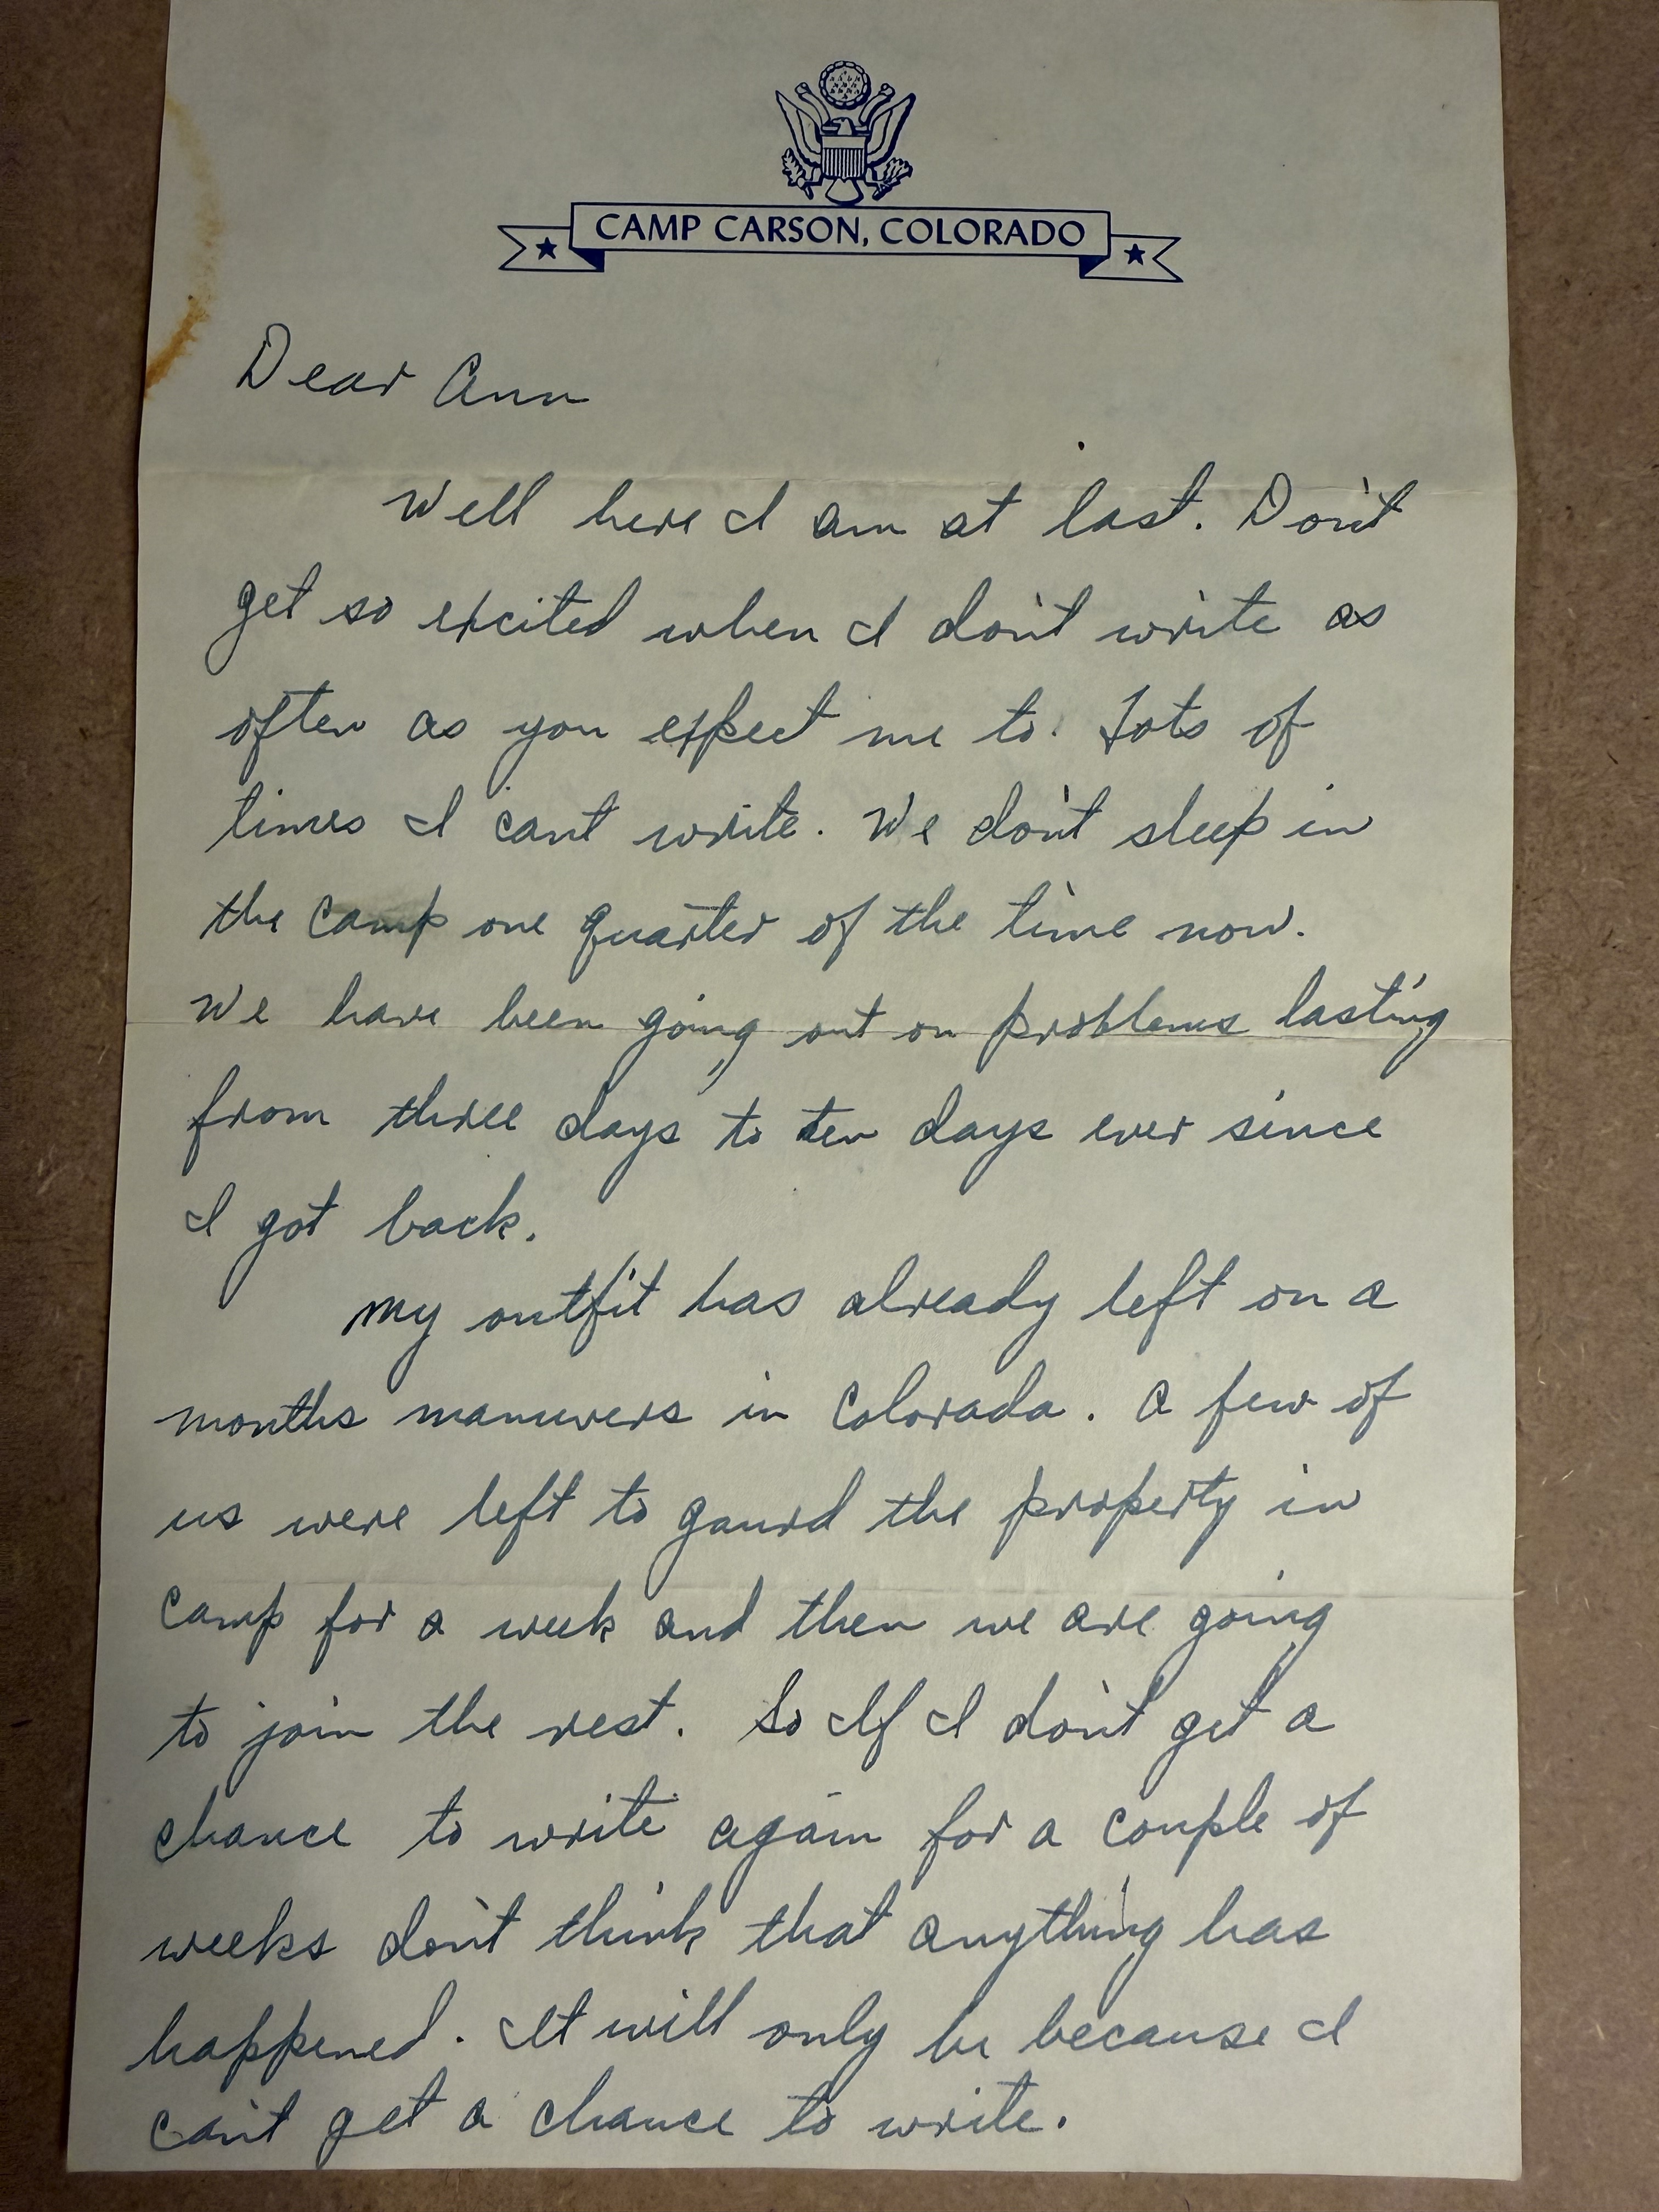 CAMP CARSON, COLORADO
Dear Ann
Well here I am at last. Don't
get so excited when I don't write as
often as you expect me to. Lots of
times I can't write. We don't sleep in
the camp one quarter of the time now.
We have been going out on problems lasting
from three days to ten days ever since
I got back.
My outfit has already left on a
months manuvers in Colorada. A few of
us were left to gaurd the property in
camp for a week and then we are going
to join the rest. So If I don't get a
chance to write again for a couple of
weeks don't think that anything has
happened. It will only be because I
can't get a chance to write.